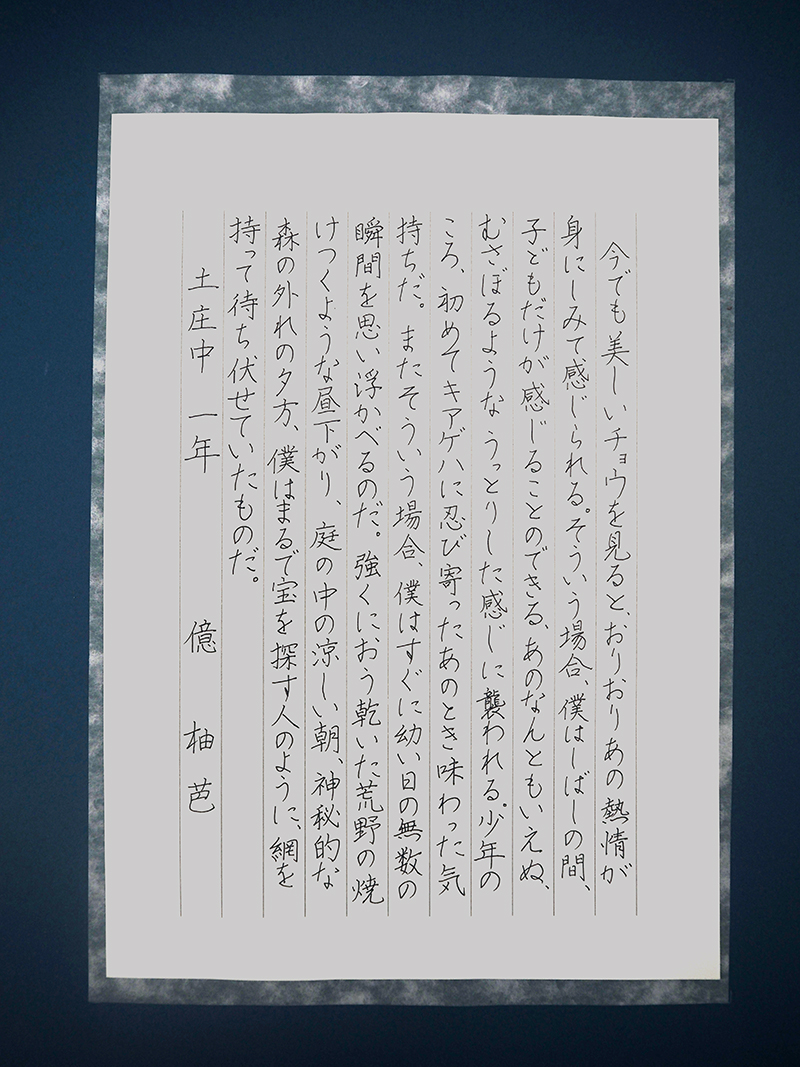 今でも美しいチョウを見ると、おりおりあの熱情が
身にしみて感じられる。そういう場合、僕はしばしの間、
子どもだけが感じることのできる、あのなんともいえぬ、
むさぼるようなうっとりした感じに襲われる。少年の
ころ、初めてキアゲハに忍び寄ったあのとき味わった気
持ちだ。またそういう場合、僕はすぐに幼い日の無数の
瞬間を思い浮かべるのだ。強くにおう乾いた荒野の焼
けつくような昼下がり、庭の中の涼しい朝、神秘的な
森の外れの夕方、僕はまるで宝を探す人のように、網を
持って待ち伏せていたものだ。
土庄中 一年 億 柚芭